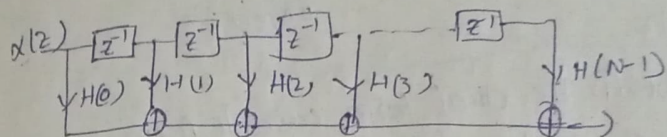 x(z) z⁻¹ z⁻¹ z⁻¹ z⁻¹
H(0) H(1) H(2) H(3) H(N-1)